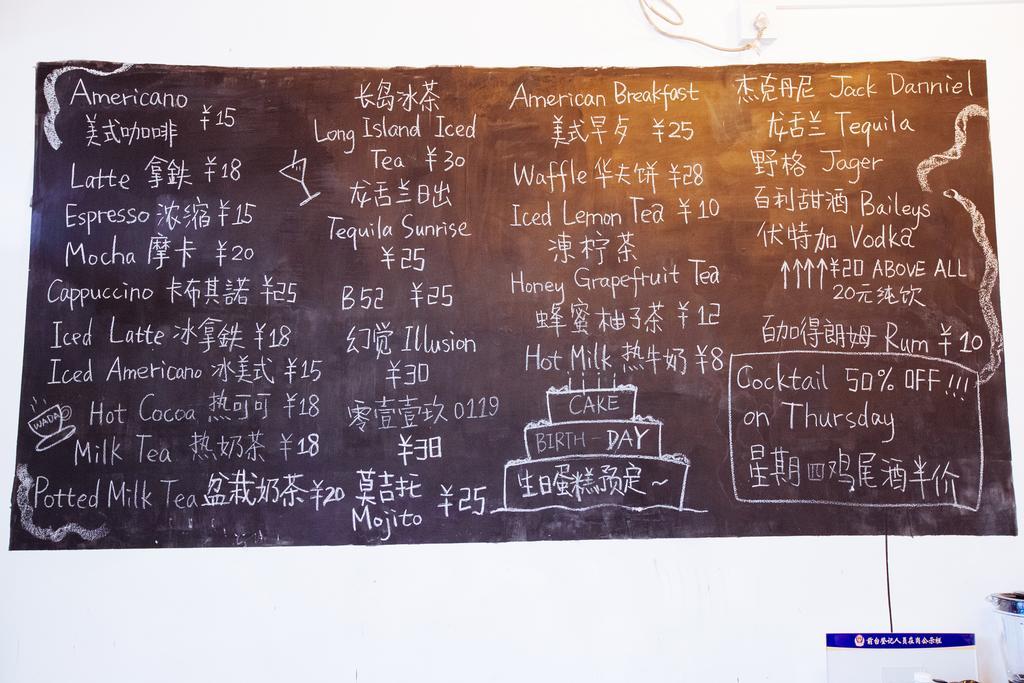 Americano
美式咖啡 ¥15
Latte 拿鉄 ¥18
Espresso 浓缩 ¥15
Mocha 摩卡 ¥20
Cappuccino 卡布其諾 ¥25
Iced Latte 冰拿鉄 ¥18
Iced Americano 冰美式 ¥15
Hot Cocoa 热可可 ¥18
WADA
Milk Tea 热奶茶 ¥18
Potted Milk Tea 盆栽奶茶 ¥20
长岛冰茶
Long Island Iced
Tea ¥30
龙舌兰日出
Tequila Sunrise
¥25
B52 ¥25
幻觉 Illusion
¥30
零壹壹玖 0119
¥38
莫吉托
Mojito ¥25
American Breakfast
美式早歺 ¥25
Waffle 华夫饼 ¥28
Iced Lemon Tea ¥10
凍柠茶
Honey Grapefruit Tea
蜂蜜柚子茶 ¥12
Hot Milk 热牛奶 ¥8
CAKE
BIRTH-DAY
生日蛋糕预定~
杰克丹尼 Jack Danniel
龙舌兰 Tequila
野格 Jager
百利甜酒 Baileys
伏特加 Vodka
↑↑↑↑¥20 ABOVE ALL
20元纯饮
百加得朗姆 Rum ¥10
Cocktail 50% OFF!!!
on Thursday
星期四鸡尾酒半价
前台登记人员在岗公示栏